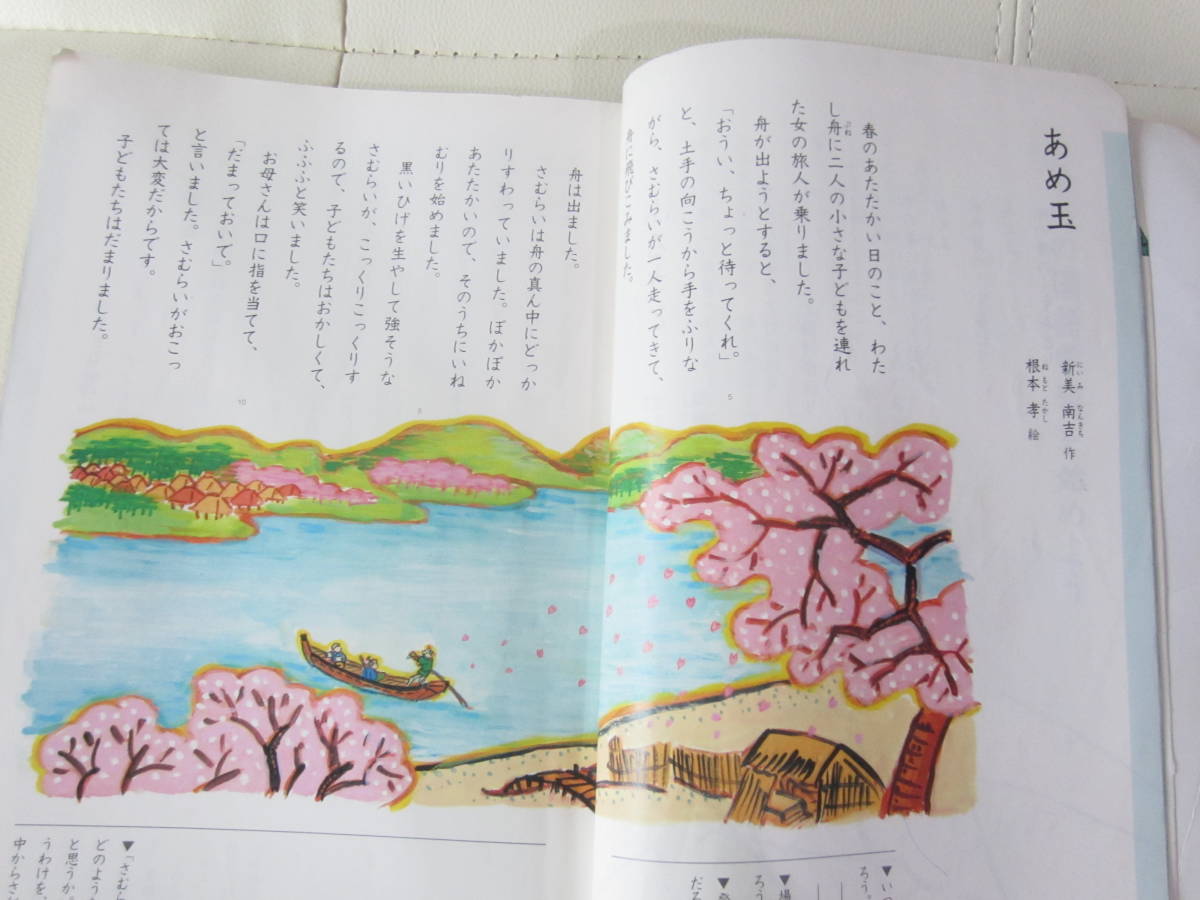 あめ玉
新美 南吉 作
にいみ なんきち
根本 孝 絵
ねもと たかし
春のあたたかい日のこと、わた
し舟に二人の小さな子どもを連れ
ぶね
た女の旅人が乗りました。
舟が出ようとすると、
「おうい、ちょっと待ってくれ。」
と、土手の向こうから手をふりな
がら、さむらいが一人走ってきて、
舟に飛びこみました。
5
舟は出ました。
さむらいは舟の真ん中にどっか
りすわっていました。ぽかぽか
あたたかいので、そのうちにいね
むりを始めました。
黒いひげを生やして強そうな
さむらいが、こっくりこっくりす
るので、子どもたちはおかしくて、
ふふふと笑いました。
お母さんは口に指を当てて、
「だまっておいで。」
と言いました。さむらいがおこっ
ては大変だからです。
子どもたちはだまりました。
10
▼いつ
ろう。
▼場
ろう
だろ
▼「さむら
どのよう
と思うか。
うわけを、
中からさ